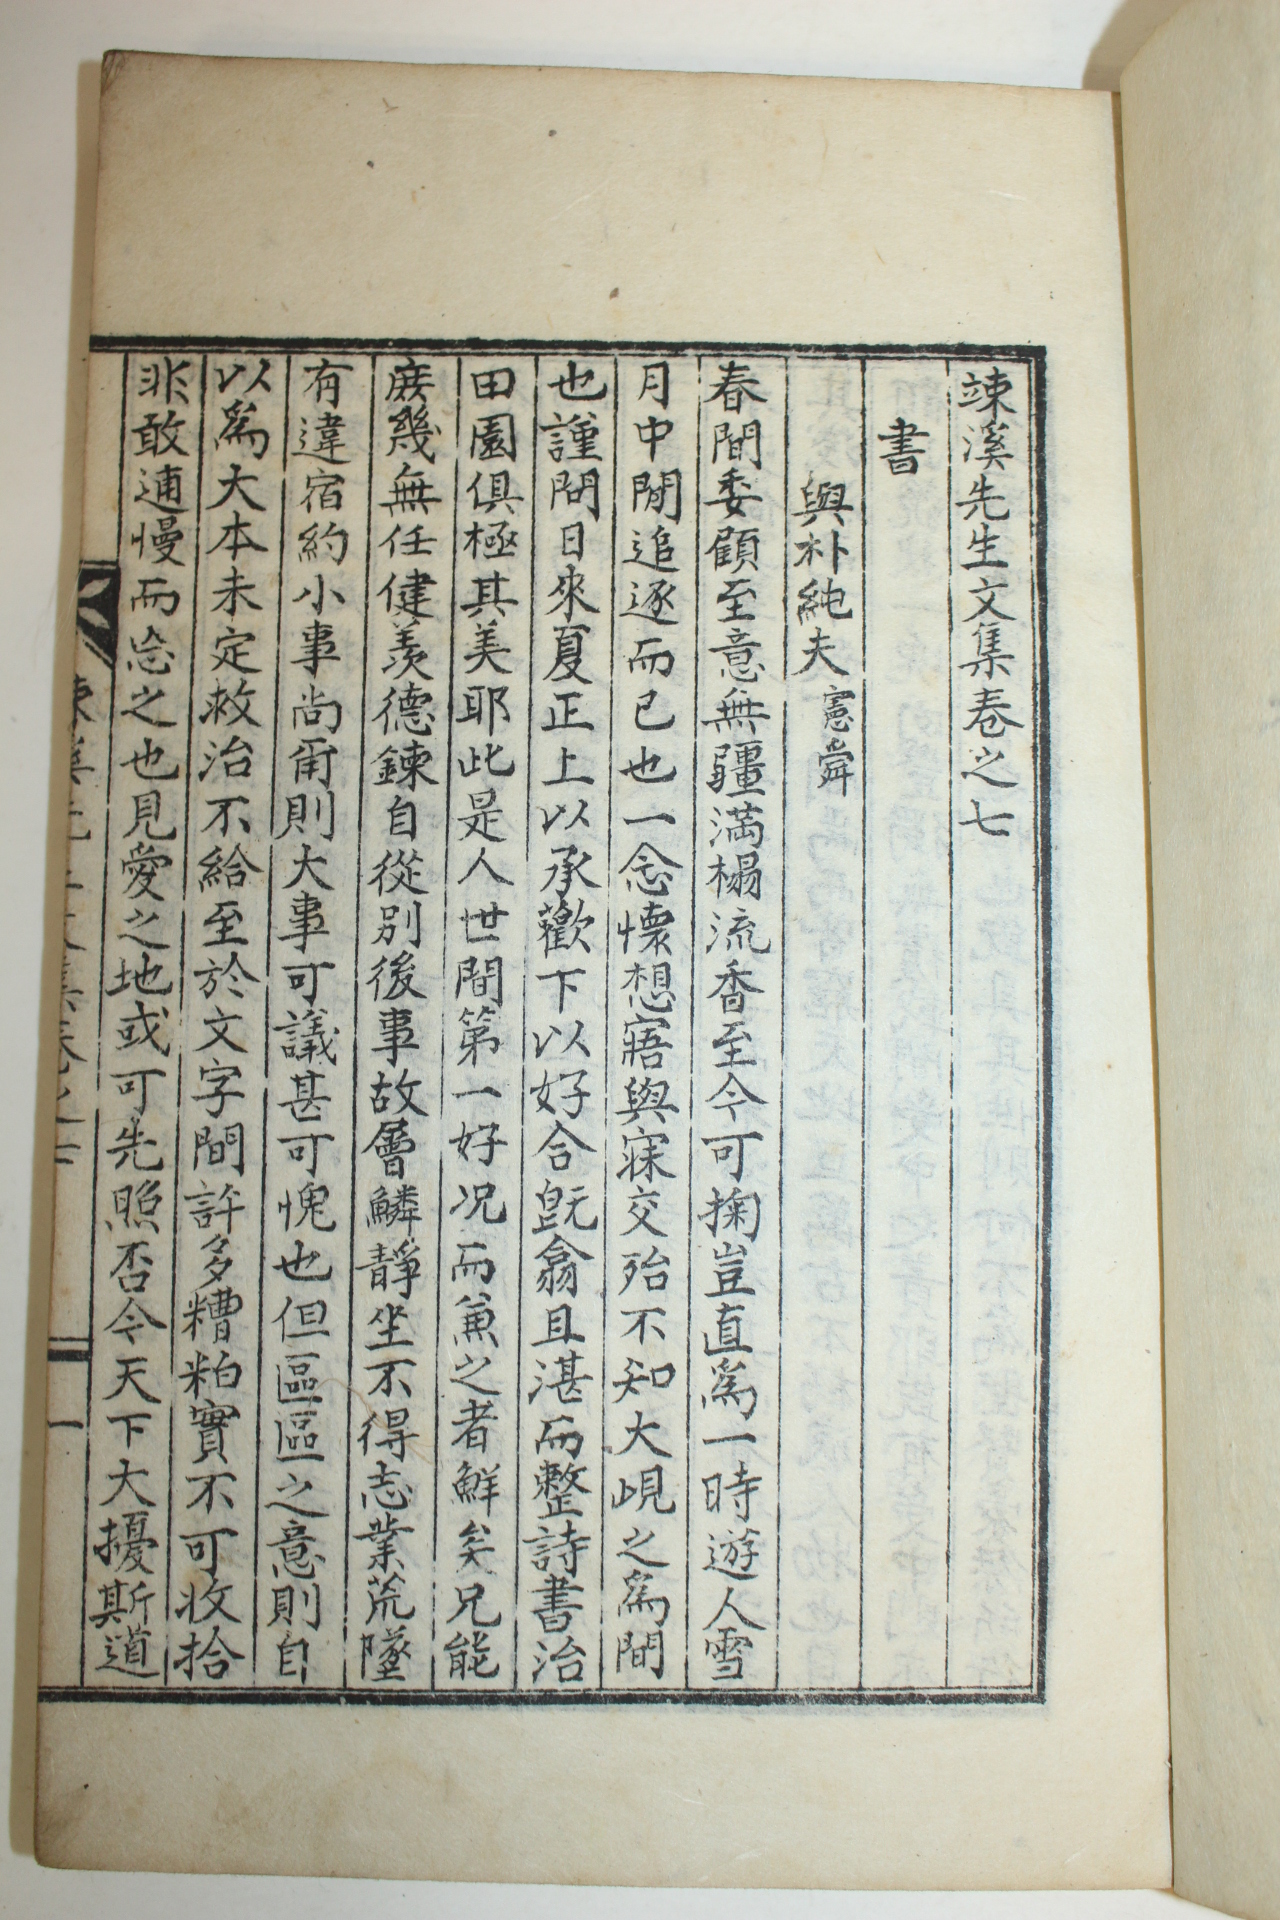 竦溪先生文集卷之七
書
與朴純夫憲舜
春間委顧至意無疆滿榻流香至今可掬豈直爲一時遊人雪
月中閒追逐而已也一念懷想寤與寐交殆不知大峴之爲間
也謹問日來夏正上以承歡下以好合旣翕且湛而整詩書治
田園俱極其美耶此是人世間第一好况而兼之者鮮矣兄能
庶幾無任健羨德鍊自從別後事故層鱗靜坐不得志業荒墜
有違宿約小事尙甭則大事可議甚可愧也但區區之意則自
以爲大本未定救治不給至於文字間許多糟粕實不可收拾
非敢逋慢而忘之也見愛之地或可先照否今天下大擾斯道
竦溪先生文集卷之七
一